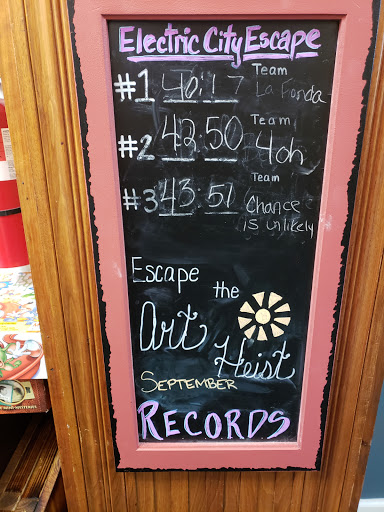 Electric City Escape
#1 40:17 Team La Fonda
#2 42:50 Team 4oh
#3 43:51 Team Chance is unlikely
Escape
the
Art
Heist
September
Records